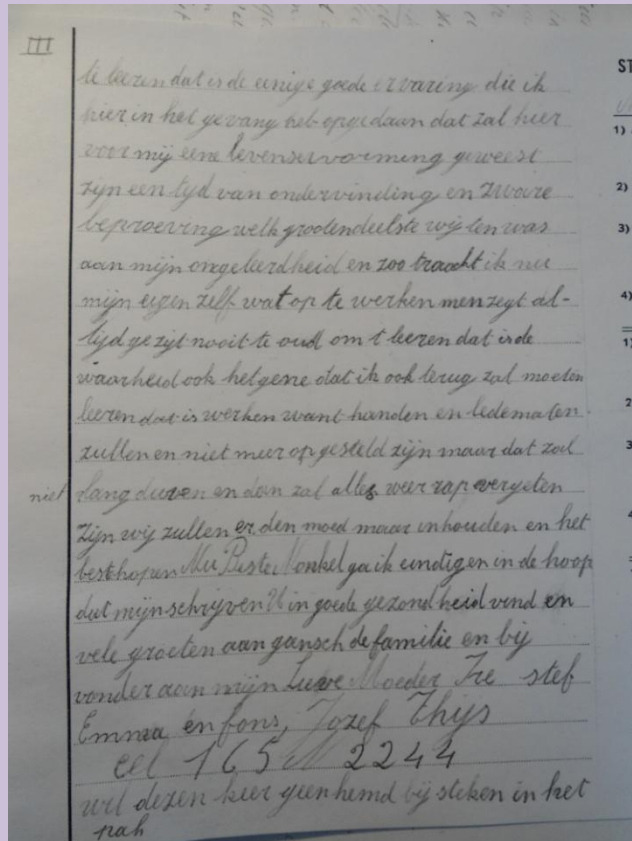 III
te leeren dat is de einige goede ervaring die ik
hier in het gevang heb opgedaan dat zal hier
voor mij eene levenservorming geweest
zijn een tijd van ondervinding en zware
beproeving welk grootendeelste wijten was
aan mijn ongeleerdheid en zoo tracht ik nu
mijn eigen zelf wat op te werken men zegt al-
tijd ge zijt nooit te oud om t leeren dat is de
waarheid ook hetgene dat ik ook terug zal moeten
leeren dat is werken want handen en ledematen
zullen en niet meer op gesteld zijn maar dat zal
niet lang duren en dan zal alles weer rap vergeten
zijn wij zullen er den moed maar inhouden en het
best hopen Nu Beste Nonkel ga ik eindigen in de hoop
dat mijn schrijven U in goede gezondheid vind en
vele groeten aan gansch de familie en bij
zonder aan mijn Lieve Moeder stef
Emma en fons, Jozef Thijs
cel 165 N 2244
wil dezen keer geen hemd bij steken in het
pak
ST
1)
2)
3)
4)
1)
2
3